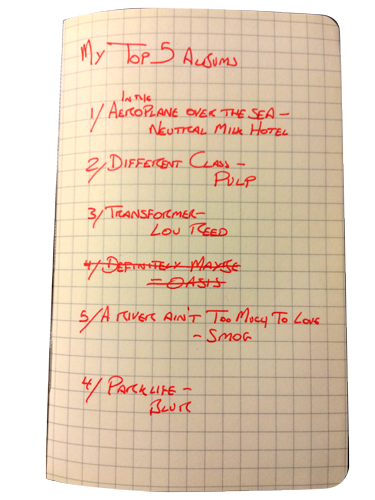 My Top 5 Albums
In the
1/ Aeroplane over the Sea –
Neutral Milk Hotel
2/ Different Class –
Pulp
3/ Transformer –
Lou Reed
4/ Definitely Maybe
– Oasis
5/ A River Ain't Too Much To Love
– Smog
4/ Parklife –
Blur